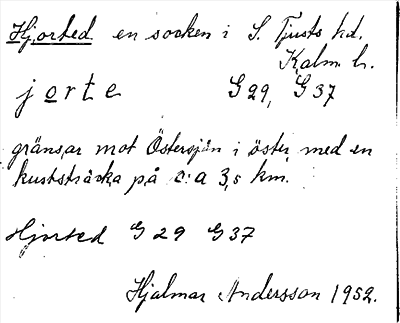 Hjorted en socken i S. Tjusts hd.
Kalm. l.
jorte G 29, G 37
gränsar mot Östersjön i öster med en
kuststräcka på c:a 3,5 km.
Hjorted G 29 G 37
Hjalmar Andersson 1952.